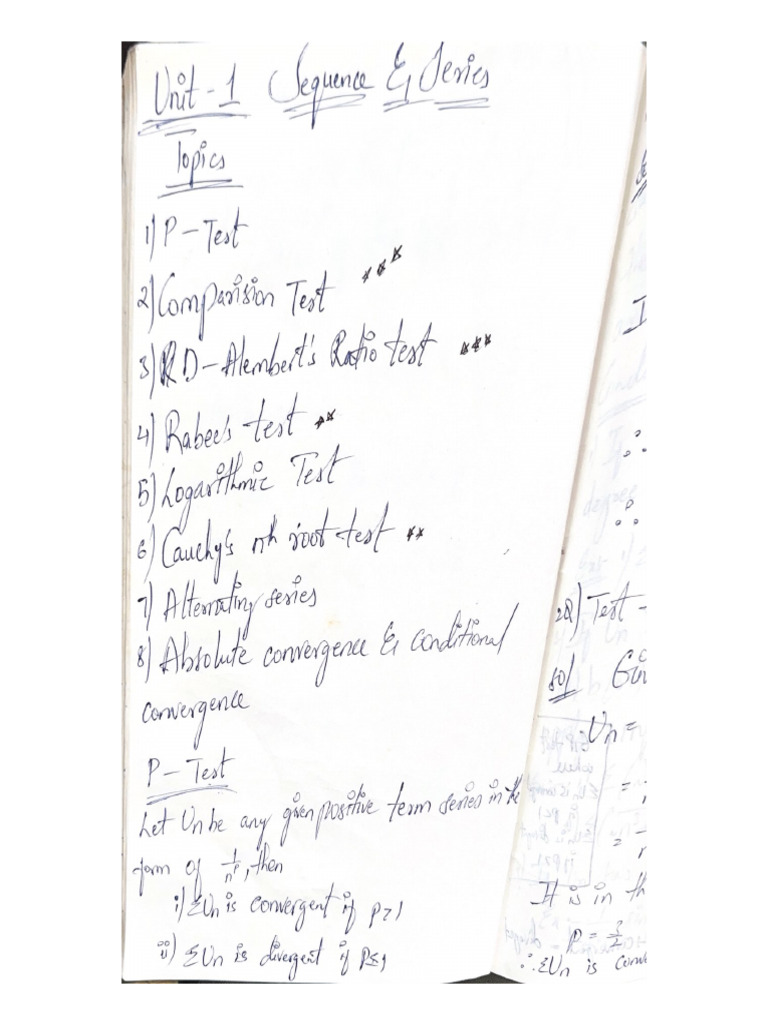 Unit - 1 Sequence & Series
Topics
1) P - Test
2) Comparision Test ***
3) D - Alembert's Ratio test ***
4) Rabee's test **
5) Logarithmic Test
6) Cauchy's nth root test **
7) Alternating series
8) Absolute convergence & conditional
convergence
P - Test
Let Un be any given positive term series in the
form of 1/n^p, then
i) ΣUn is convergent if p>1
ii) ΣUn is divergent if p≤1
2Q) Test -
sol
Un =
=
=
It is in th
P = 3/2
∴ ΣUn is conve